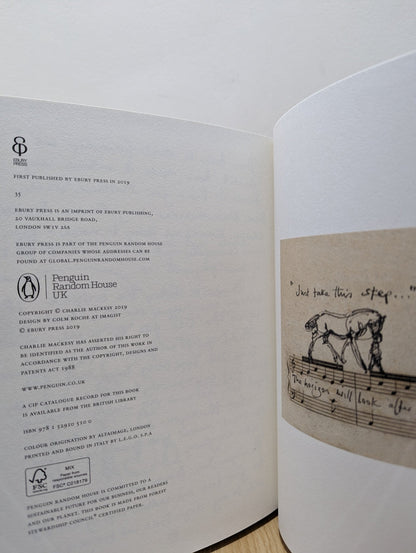 EBURY
PRESS
FIRST PUBLISHED BY EBURY PRESS IN 2019
35
EBURY PRESS IS AN IMPRINT OF EBURY PUBLISHING,
20 VAUXHALL BRIDGE ROAD,
LONDON SW1V 2SA
EBURY PRESS IS PART OF THE PENGUIN RANDOM HOUSE
GROUP OF COMPANIES WHOSE ADDRESSES CAN BE
FOUND AT GLOBAL.PENGUINRANDOMHOUSE.COM
Penguin
Random House
UK
COPYRIGHT © CHARLIE MACKESY 2019
DESIGN BY COLM ROCHE AT IMAGIST
© EBURY PRESS 2019
CHARLIE MACKESY HAS ASSERTED HIS RIGHT TO
BE IDENTIFIED AS THE AUTHOR OF THIS WORK IN
ACCORDANCE WITH THE COPYRIGHT, DESIGNS AND
PATENTS ACT 1988
WWW.PENGUIN.CO.UK
A CIP CATALOGUE RECORD FOR THIS BOOK
IS AVAILABLE FROM THE BRITISH LIBRARY
ISBN 978 1 52910 510 0
COLOUR ORIGINATION BY ALTAIMAGE, LONDON
PRINTED AND BOUND IN ITALY BY L.E.G.O. S.P.A
FSC
MIX
Paper from
responsible sources
FSC® C018179
PENGUIN RANDOM HOUSE IS COMMITTED TO A
SUSTAINABLE FUTURE FOR OUR BUSINESS, OUR READERS
AND OUR PLANET. THIS BOOK IS MADE FROM FOREST
STEWARDSHIP COUNCIL® CERTIFIED PAPER.
"Just take this step..."
The horizon will look after